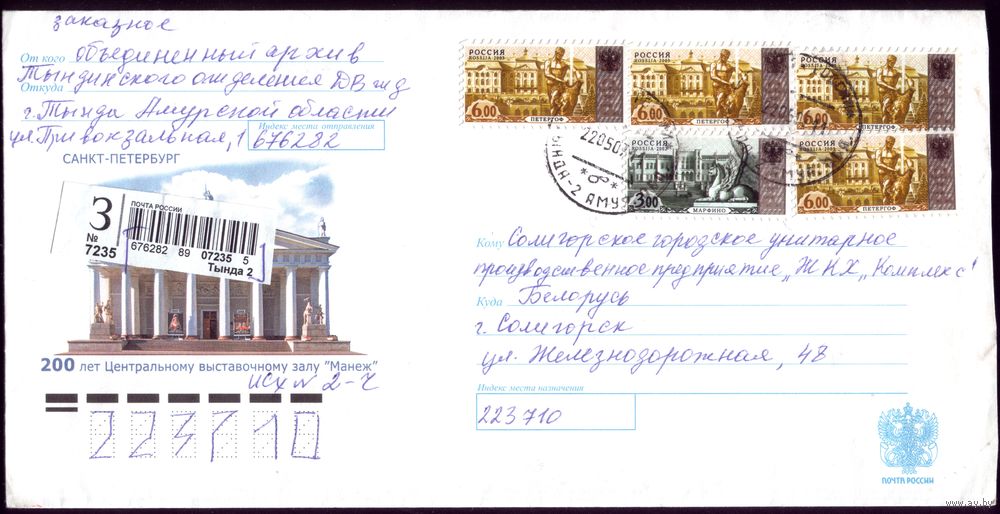 заказное
От кого Объединенный архив
Откуда Тындинского отделения ДВжд
г. Тында Амурской области
Индекс места отправления
ул. Привокзальная, 1 676282
САНКТ-ПЕТЕРБУРГ
З
№
7235
ПОЧТА РОССИИ
676282 89 07235 5
Тында 2
200 лет Центральному выставочному залу "Манеж"
исх N 2-ч
223710
РОССИЯ
ROSSIJA 2003
6.00
ПЕТЕРГОФ
РОССИЯ
ROSSIJA 2003
6.00
ПЕТЕРГОФ
РОССИЯ
6.00
ПЕТЕРГОФ
РОССИЯ
ROSSIJA 2002
3.00
МАРФИНО
РОССИЯ
ROSSIJA 2003
6.00
ПЕТЕРГОФ
220507
ТЫНДА-2 АМУР
Кому Солигорское городское унитарное
производственное предприятие „ЖКХ „Комплекс"
Куда Белорусь
г. Солигорск
ул. Железнодорожная, 48
Индекс места назначения
223710
ПОЧТА РОССИИ
www.ay.by